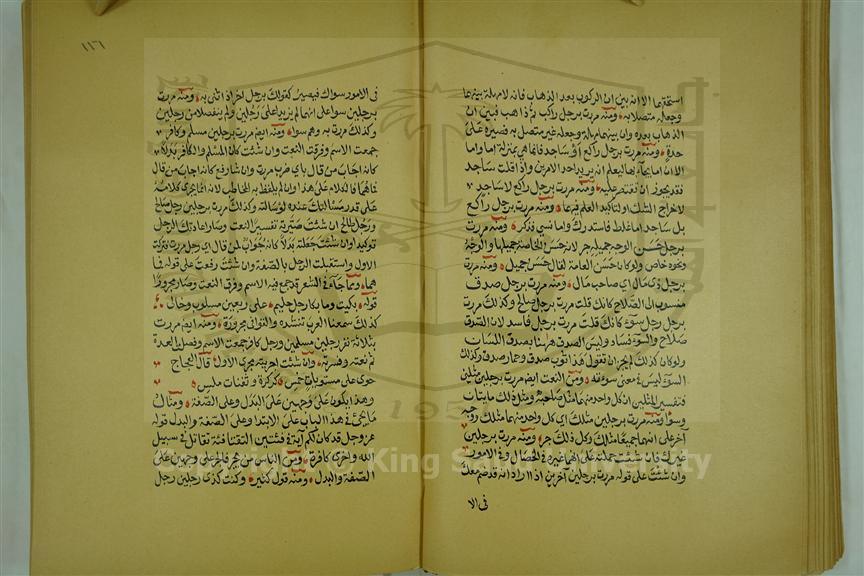 استحقهما الا انه بين ان الركوب بعد الذهاب فانه لا مهلة بينهما
وجعله متصلا به ومنه مررت برجل راكب ثم ذاهب فبين ان
الذهاب بعده وان بينهما مهلة وجعله غير متصل به فصيره على
حدة ومنه مررت برجل راكع أو ساجد فانما هي بمنزلة اما واما
الا ان اما يجاء بها ليعلم انه يريد احد الامرين واذا قلت ساجد
فقد يجوز ان تقتصر عليه ومنه مررت برجل راكع لا ساجد
لاخراج الشك او لتاكيد العلم فيهما ومنه مررت برجل راكع
بل ساجد اما غلط فاستدرك واما نسي فذكر ومنه مررت
برجل حسن الوجه جميله جر لان حسن الخاصة جميلها والوجه
ونحوه خاص ولو كان حسن العامة لقال حسن جميل ومنه مررت
برجل ذي مال اي صاحب مال ومنه مررت برجل صدق
منسوب الى الصلاح كانك قلت مررت برجل صالح وكذلك مررت
برجل رجل سوء كانك قلت مررت برجل فاسد لان الصدق
صلاح والسوء فساد وليس الصدق ههنا بصدق اللسان
ولو كان كذلك لم يجز ان تقول هذا ثوب صدق وحمار صدق وكذلك
السوء ليس في معنى سوءته ومن النعت ايضا مررت برجلين مثلين
فتفسير المثلين ان كل واحد منهما مثل صاحبه ومثل ذلك سيان
وسواء ومنه مررت برجلين مثلك اي كل واحد منهما مثلك ووجه
آخر على انهما جميعا مثلك وكل ذلك جر ومنه مررت برجلين
غيرك فان شئت حملته على انهما غيره في الخصال وفي الامور
وان شئت على قوله مررت برجلين آخرين اذا اراد انه قد ضم معك
في الا
١١٦
في الامور سواك فيصير كقولك برجل اخر اذا ثنى به ومنه مررت
برجلين سواء على انهما لم يزيدا على رجلين ولم ينقصا من رجلين
وكذلك مررت به وهم سواء ومنه ايضا مررت برجلين مسلم وكافر
جمعت الاسم وفرقت النعت وان شئت كان المسلم والكافر بدلا
كانه اجاب من قال باي ضرب مررت وان شاء رفع كانه اجاب من قال
فما هما فالكلام على هذا وان لم يلفظ به المخاطب لانه انما يجري كلامه
على قدر مسئالتك عنده لو سالته وكذلك مررت برجلين رجل صالح
ورجل طالح ان شئت صيرته تفسيرا لنعت وصار اعادتك الرجل
توكيدا وان شئت جعلته بدلا كانه جواب لمن قال اي رجل مررت فتركت
الاول واستقبلت الرجل بالصفة وان شئت رفعت على قوله فما
هما ومما جاء في الشعر قد جمع فيه الاسم وفرق النعت وصار مجرورا
قوله بكيت وما بكا رجل حليم على ربعين مسلوب وخالي
كذلك سمعنا العرب تنشده والقوافي مجرورة ومنه ايضا مررت
بثلاثة نفر رجلين مسلمين ورجل كافر جمعت الاسم وفصل العدة
ثم نعته وفسره وان شئت اجريته مجرى الاول قال العجاج
خوى على مستويات خمس كركرة وثفنات ملس
وهذا يكون على وجهين على البدل وعلى الصفة ومثال
ما يجئ في هذا الباب على الابتدا وعلى الصفة والبدل قوله
عز وجل قد كان لكم آية في فئتين التقتا فئة تقاتل في سبيل
الله واخرى كافرة ومن الناس من يجر والجر على وجهين على
الصفة والبدل ومنه قول كثير وكنت كذي رجلين رجل